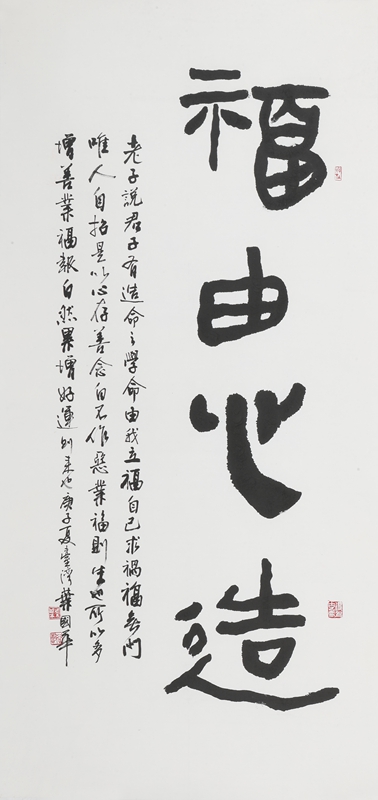 福由心造
老子說君子有造命之學命由我立福自己求禍福無門
唯人自招是以心存善念自不作惡業福則生也所以多
增善業福報自然累增好運則來也庚子夏臺灣葉國華